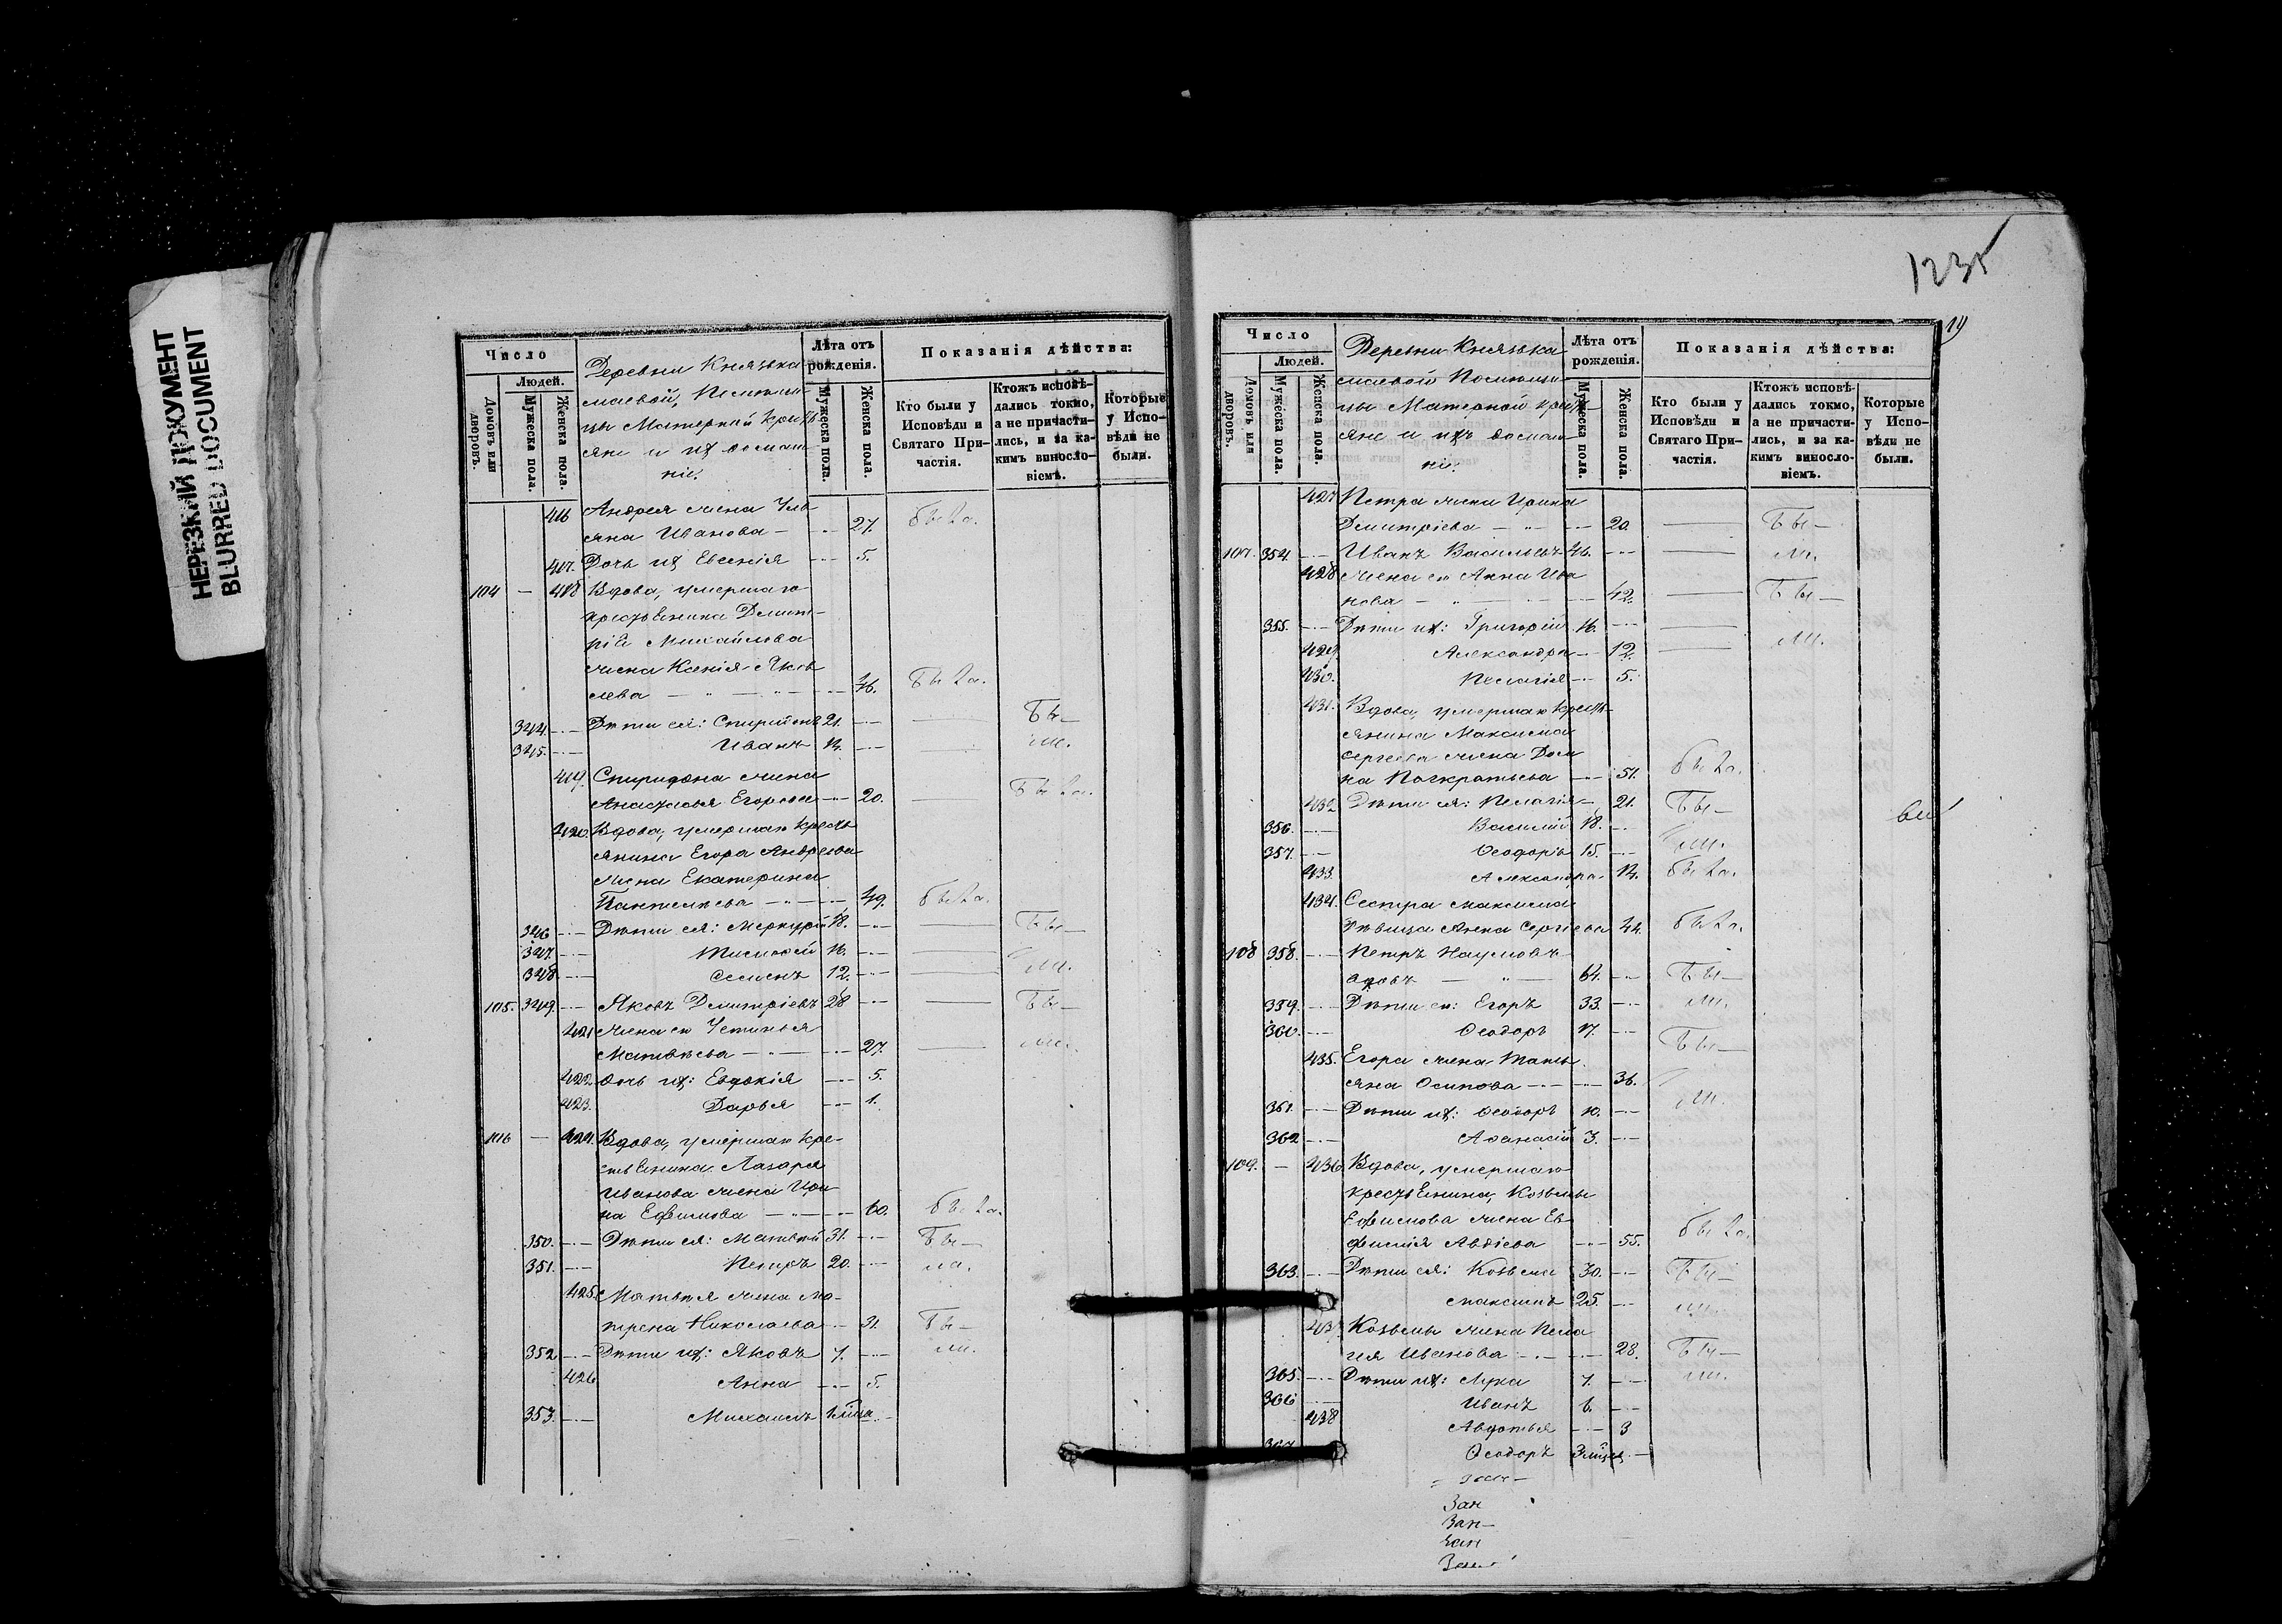 НЕРЕЗКИЙ ДОКУМЕНТ
BLURRED DOCUMENT
Число
Людей.
Домовъ или дворовъ.
Мужеска пола.
Женска пола.
Деревни Князька
маевой, Помѣщи-
цы Матерной крестъ
яне и ихъ домаш
ніе.
Лѣта отъ рожденія.
Мужеска пола.
Женска пола.
Показанія дѣйства:
Кто были у Исповѣди и Святаго При-частія.
Ктожъ исповѣ-дались токмо, а не причасти-лись, и за ка-кимъ виносло-віемъ.
Которые у Испо-вѣди не были.
416 Андрея жена Уль
яна Иванова — 27. была.
417. Дочь ихъ Евгенія 5.
104 — 418 Вдова, умершаго
крестьянина Димит-
рія Михайлова
жена Ксенія Яков
лева — 46. была.
344. Дѣти ея: Спиридонъ 21. — бы-
345. Иванъ 14. — ли.
419. Спиридона жена
Анастасья Егорова 20. — была.
420. Вдова, умершаго кресть
янина Егора Андреева
жена Екатерина
Пантелѣева — 49. была.
346 Дѣти ея: Меркурій 18. — бы-
347. Тимофей 16. —
348 Семенъ 12. — ли.
105. 349. Яковъ Димитріевъ 28 — бы-
421 Жена его Устинья
Матвѣева — 27. — ли.
422 Дочь ихъ: Евдокія 5.
423. Дарья 1.
106 — 424. Вдова, умершаго кре-
стьянина Лазаря
Иванова жена Ири
на Ефимова — 60. была.
350. Дѣти ея: Матвѣй 31. бы-
351. Петръ 20. ли.
425. Матвѣя жена Ма-
трена Николаева 31. бы-
352 Дѣти ихъ: Яковъ 7. ли.
426 Анна 5.
353. Михаилъ
123
19
Число
Людей.
Домовъ или дворовъ.
Мужеска пола.
Женска пола.
Деревни Князька
маевой Помѣщи-
цы Матерной крестъ-
яне и ихъ домаш-
ніе.
Лѣта отъ рожденія.
Мужеска пола.
Женска пола.
Показанія дѣйства:
Кто были у Исповѣди и Святаго При-частія.
Ктожъ исповѣ-дались токмо, а не причасти-лись, и за ка-кимъ виносло-віемъ.
Которые у Испо-вѣди не были.
427 Петра жена Ирина
Димитріева — 20 — бы-
107. 354. Иванъ Васильевъ 46. — ли.
428 Жена его Анна Ива
нова — 42. — бы-
355. Дѣти ихъ: Григорій 16. —
429. Александра 12. — ли.
430. Пелагія 5.
431. Вдова, умершаго кресть-
янина Максима
Сергѣева жена Дом
на Панкратьева 51. была.
432 Дѣти ея: Пелагія 21. бы-
356. Василій 18.
357. Ѳеодоръ 15. ли.
433. Александра 14. была.
434. Сестра Максима
дѣвица Анна Сергѣева 44. была.
108 358. Петръ Наумовъ
вдовъ — 64. бы-
359. Дѣти его: Егоръ 33. ли.
360. Ѳеодоръ 17.
435. Егора жена Тать
яна Осипова 36. бы-
361. Дѣти ихъ: Ѳеодоръ 10. ли.
362 Аѳанасій 3.
109. — 436 Вдова, умершаго
крестьянина, Козьмы
Ефимова жена Ев
фимія Авдіева 55. была.
363. Дѣти ея: Козьма 30. бы-
Максимъ 25. ли.
437 Козьмы жена Пела
гія Иванова 28. бы-
365. Дѣти ихъ: Лука 7. ли.
366 Иванъ 6.
438 Авдотья 3
367 Ѳеодоръ
Зан
Зан-
Зан